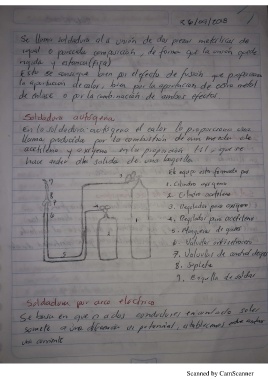 Se llama soldadura a la unión de dos piezas metálicas de
igual o parecida composición, de forma que la unión quede
rígida y estanca (fija)
Esto se consigue bien por el efecto de fusión que proporciona
la aportación de calor, bien por la aportación de otro metal
de enlace o por la combinación de ambos efectos.
Soldadura autógena
En la soldadura autógena el calor lo proporciona una
llama producida por la combustión de una mezcla de
acetileno y oxígeno en la proporción 1:1, que se
hace arder a la salida de una boquilla.
El equipo está formado por
1. Cilindro oxígeno
2. Cilindro acetileno
3. para oxígeno
4. para acetileno
5. Mangueras de gases
6. Válvulas antirretroceso
7. Válvulas de control
8. Sopleta
9. Boquilla de soldar
Soldadura por arco eléctrico
Se basa en que si a dos conductores en contacto se les
somete a una diferencia de potencial, establecemos
una corriente
Scanned by CamScanner